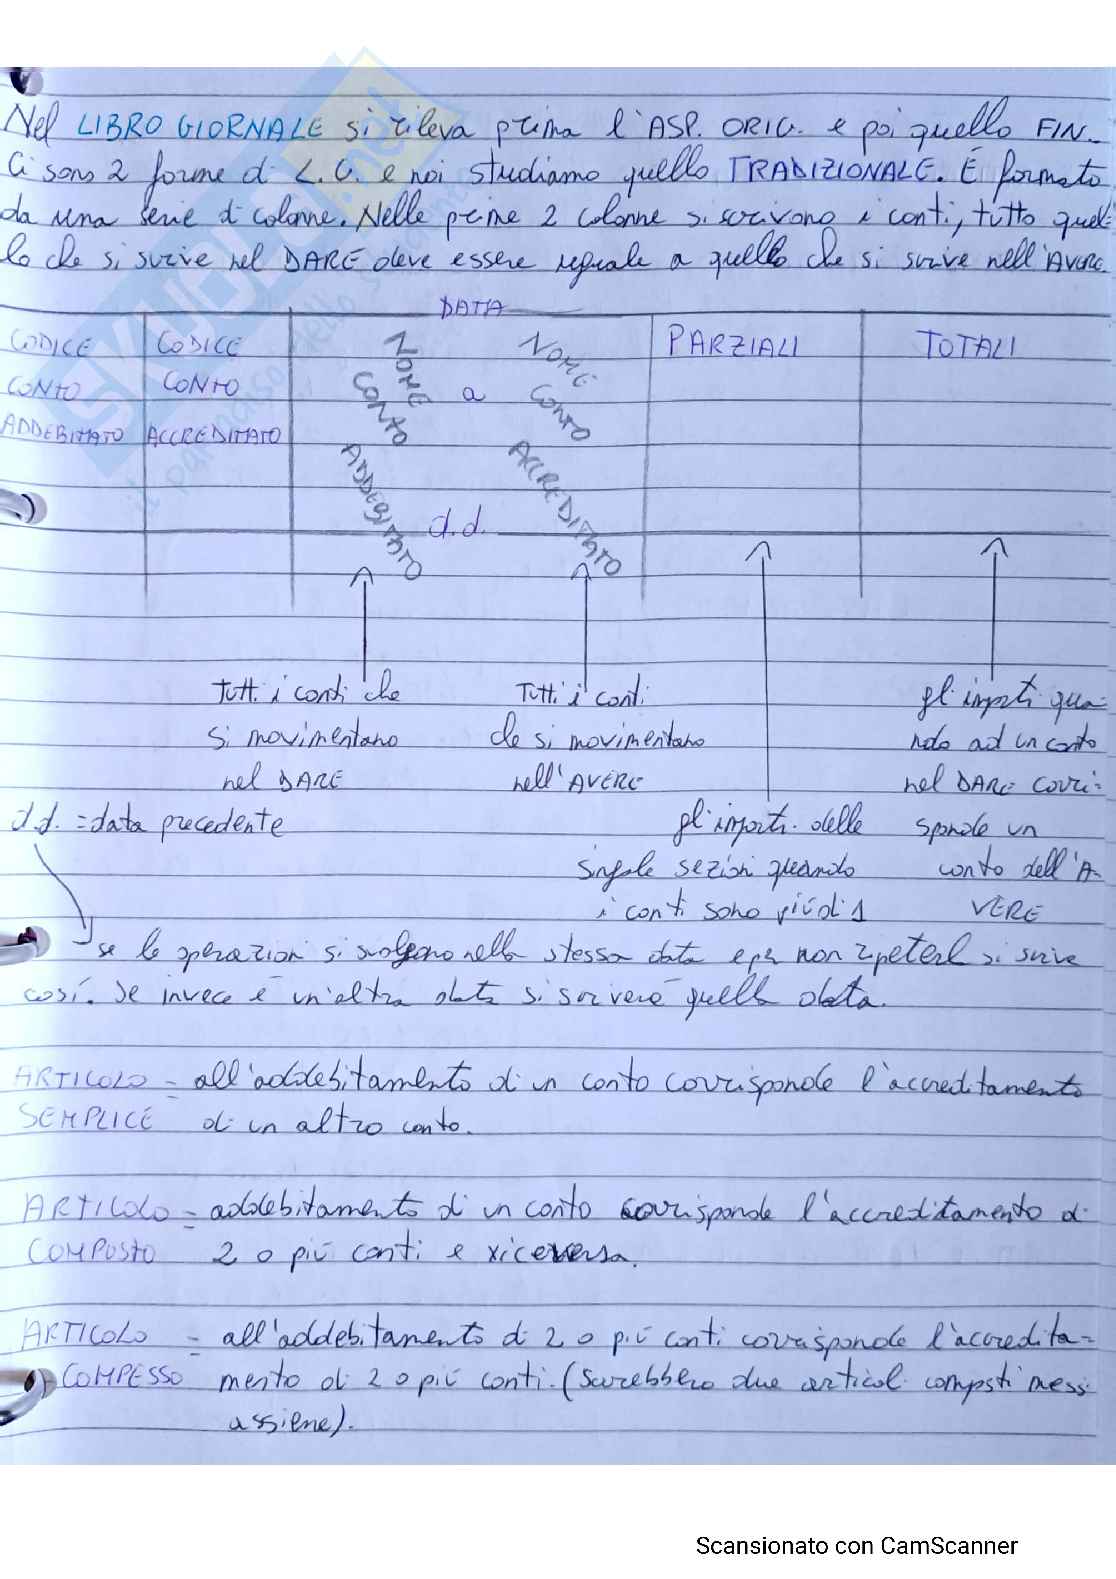 Nel LIBRO GIORNALE si rileva prima l'ASP. ORIG. e poi quello FIN.
Ci sono 2 forme di L.G. e noi studiamo quello TRADIZIONALE. É formato
da una serie di colonne. Nelle prime 2 colonne si scrivono i conti, tutto quel-
lo che si scrive nel DARE deve essere uguale a quello che si scrive nell'AVERE.
DATA
CODICE CONTO ADDEBITATO
CODICE CONTO ACCREDITATO
NOME CONTO ADDEBITATO
a
NOME CONTO ACCREDITATO
PARZIALI
TOTALI
d.d.
Tutti i conti che
si movimentano
nel DARE
Tutti i conti
che si movimentano
nell'AVERE
gli importi delle
singole sezioni quando
i conti sono più di 1
gli importi qua-
ndo ad un conto
nel DARE corri-
sponde un
conto dell'A-
VERE
d.d. = data precedente
se le operazioni si svolgono nella stessa data e per non ripeterla si scrive
così. Se invece è un'altra data si scriverà quella data.
ARTICOLO = all'addebitamento di un conto corrisponde l'accreditamento
SEMPLICE di un altro conto.
ARTICOLO = addebitamento di un conto corrisponde l'accreditamento di
COMPOSTO 2 o più conti e viceversa.
ARTICOLO = all'addebitamento di 2 o più conti corrisponde l'accredita-
COMPESSO mento di 2 o più conti. (Sarebbero due articoli composti messi
assieme).
SKUOLA.net
Scansionato con CamScanner